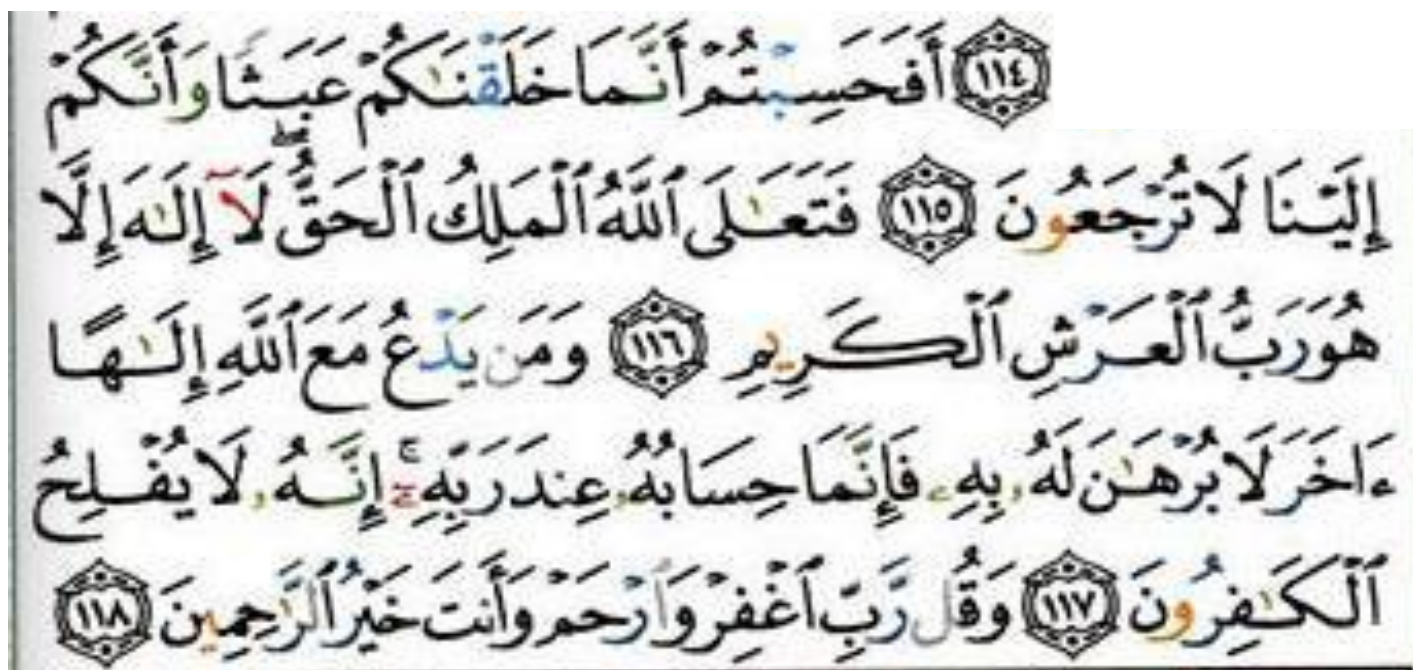 ﴿١١٤﴾ أَفَحَسِبْتُمْ أَنَّمَا خَلَقْنَٰكُمْ عَبَثًا وَأَنَّكُمْ
إِلَيْنَا لَا تُرْجَعُونَ ﴿١١٥﴾ فَتَعَٰلَى ٱللَّهُ ٱلْمَلِكُ ٱلْحَقُّ ۖ لَآ إِلَٰهَ إِلَّا
هُوَ رَبُّ ٱلْعَرْشِ ٱلْكَرِيمِ ﴿١١٦﴾ وَمَن يَدْعُ مَعَ ٱللَّهِ إِلَٰهًا
ءَاخَرَ لَا بُرْهَٰنَ لَهُۥ بِهِۦ فَإِنَّمَا حِسَابُهُۥ عِندَ رَبِّهِۦٓ ۚ إِنَّهُۥ لَا يُفْلِحُ
ٱلْكَٰفِرُونَ ﴿١١٧﴾ وَقُل رَّبِّ ٱغْفِرْ وَٱرْحَمْ وَأَنتَ خَيْرُ ٱلرَّٰحِمِينَ ﴿١١٨﴾